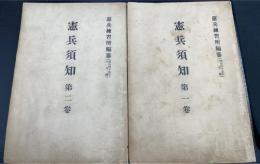 憲兵練習所編纂
憲兵須知
第一卷
憲兵練習所編纂
憲兵須知
第二卷